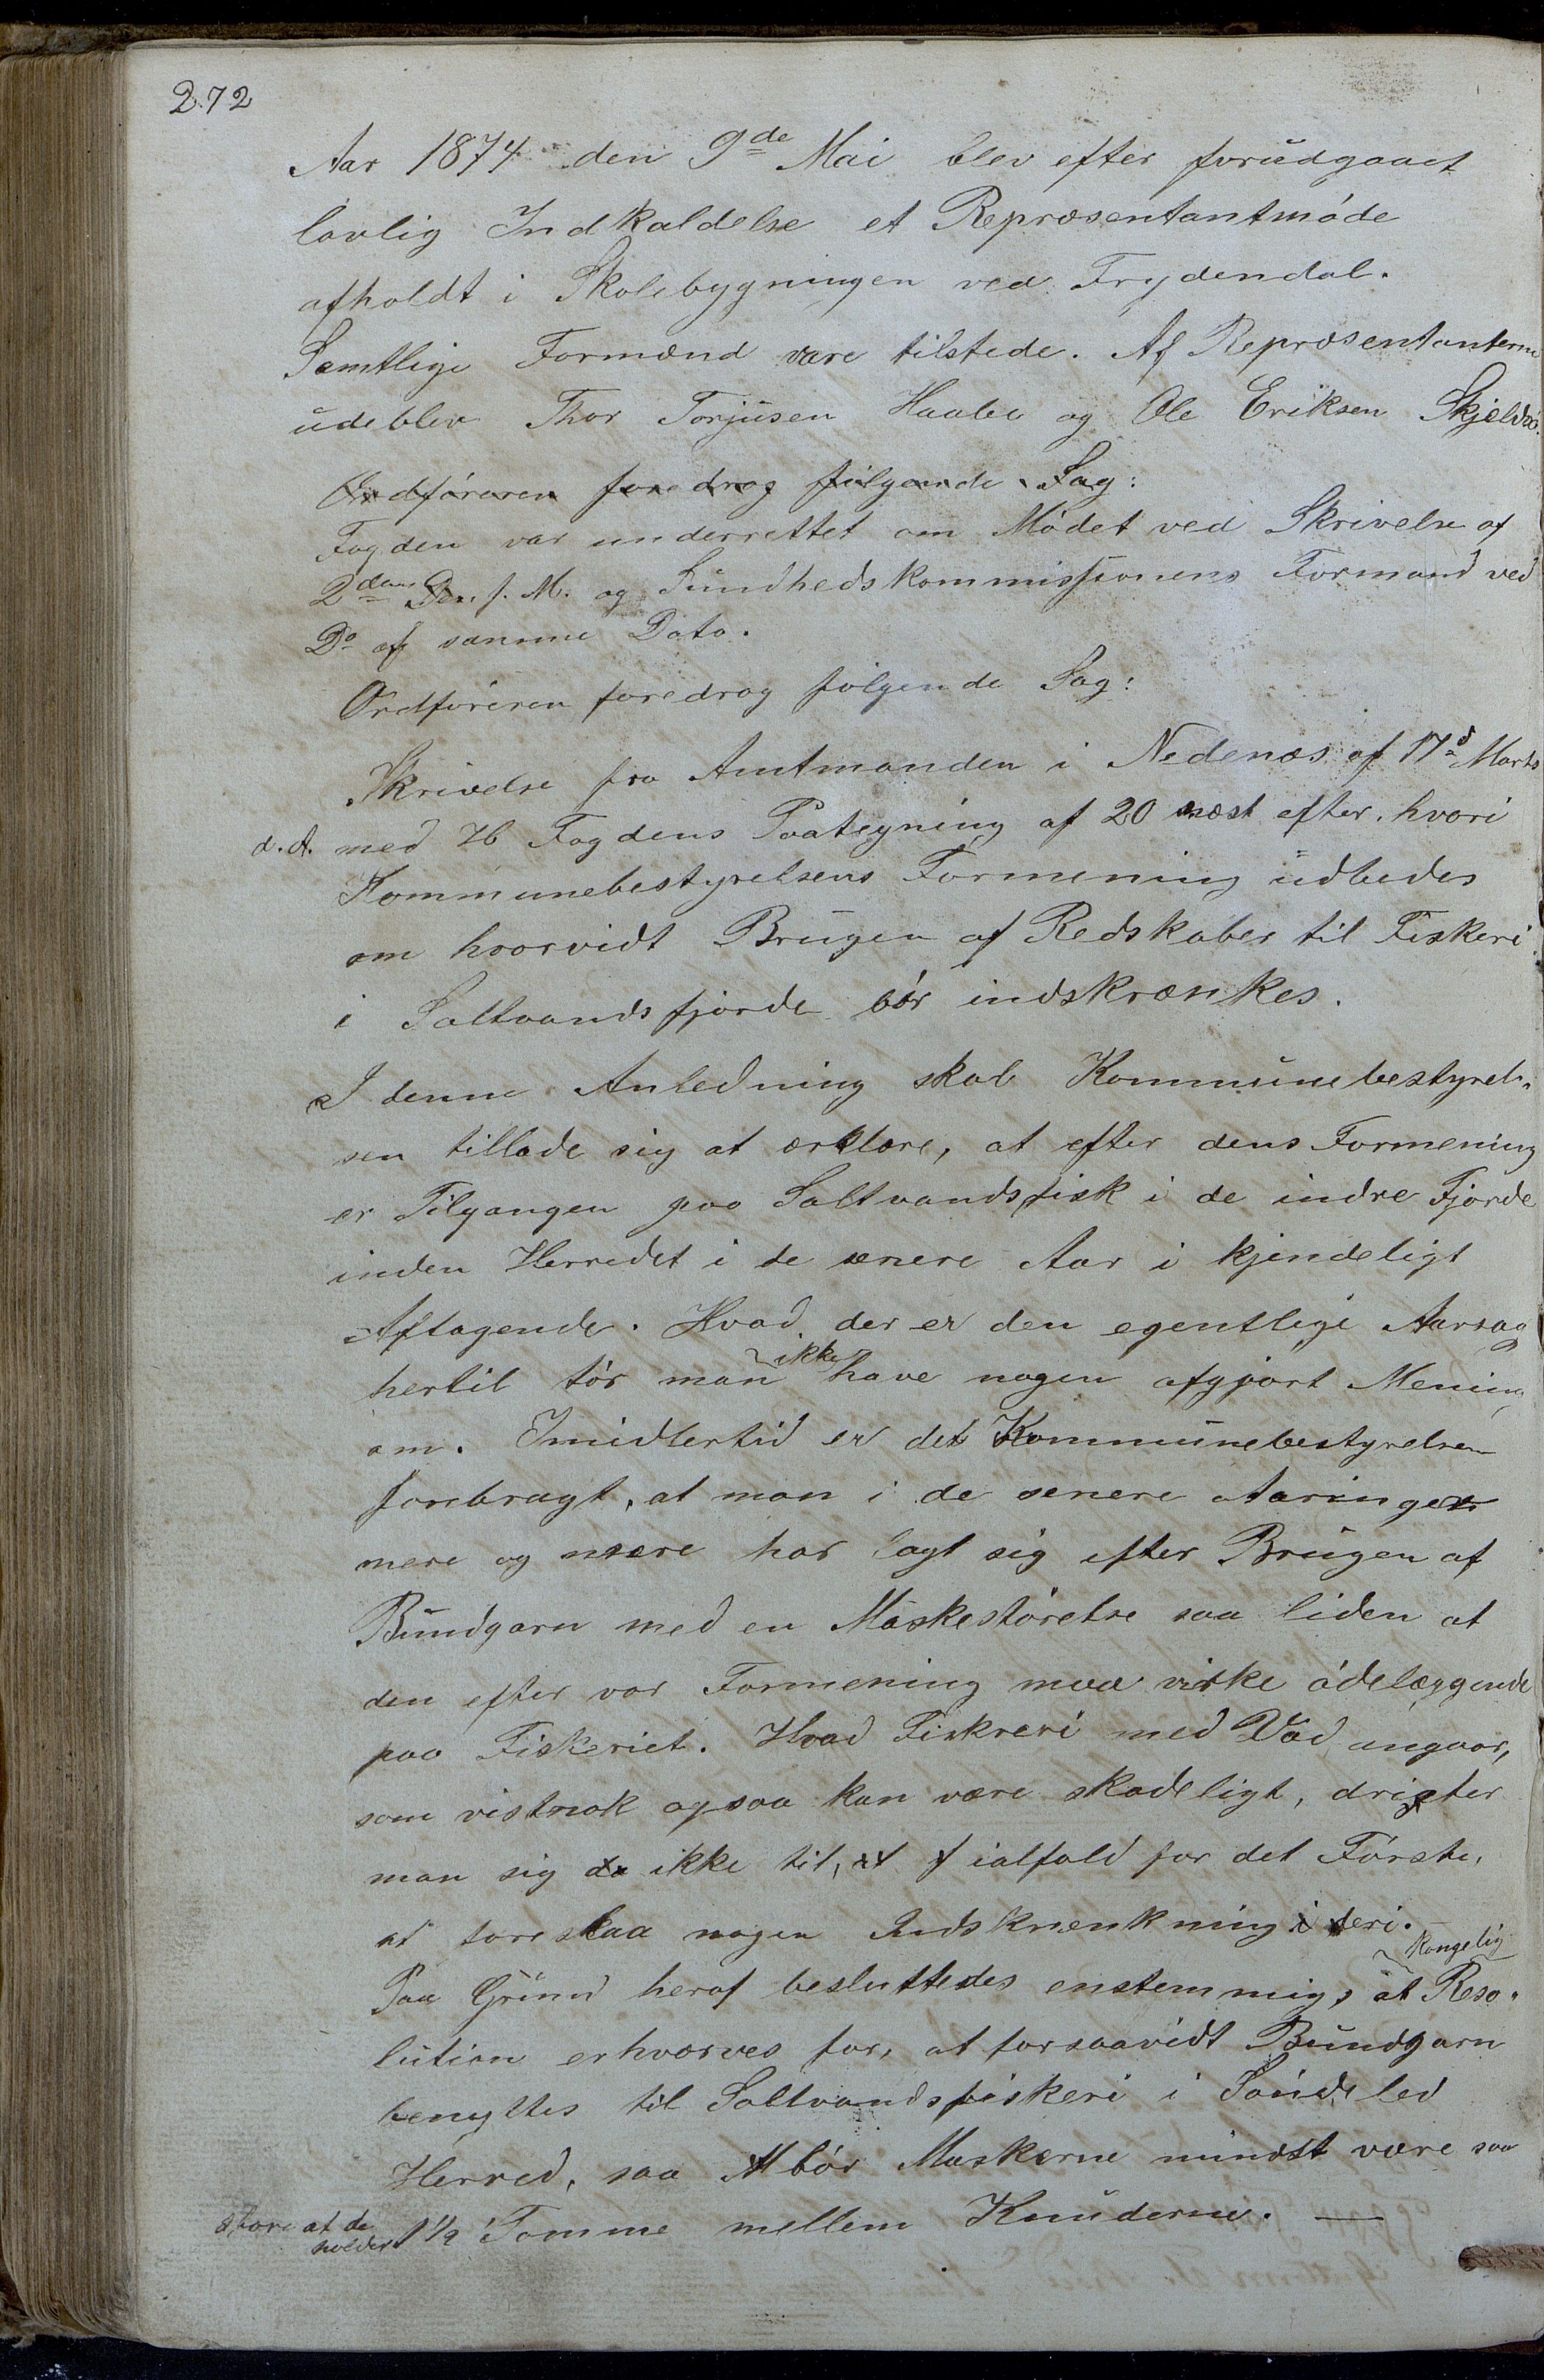 272
Aar 1874 den 9de Mai blev efter forudgaaet
lovlig Indkaldelse et Repræsentantmóde
afholdt i Skolebygningen ved Frydendal.
Samtlige Formænd vare tilstede. Af Repræsentanterne
udeblev Thor Torjusen Haabe og Ole Eriksen Skjeldsø.
Ordfóreren foredrog fólgende Sag:
Fogden var underrettet om Módet ved Skrivelse af
2den f. M. og Sundhedskommissionens Formand ved
Do af samme Dato.
Ordfóreren foredrog fólgende Sag:
Skrivelse fra Amtmanden i Nedenæs af 17d Marts
d. A. med Hr Fogdens Paategning af 20 næst efter, hvori
Kommunebestyrelsens Formening udbedes
om hvorvidt Brugen af Redskaber til Fiskeri
i Saltvandsfjorde bór indskrænkes.
I denne Anledning skal Kommunebestyrel-
sen tillade sig at erklære, at efter dens Formening
er Tilgangen paa Saltvandsfisk i de indre Fjorde
inden Herredet i de senere Aar i kjendeligt
Aftagende. Hvad der er den egentlige Aarsag
hertil tór man ikke have nogen afgjort Mening
om. Imidlertid er det Kommunebestyrelsen
forebragt, at man i de senere Aaringer
mere og mere har lagt sig efter Brugen af
Bundgarn med en Maskestórelse saa liden at
den efter vor Formening maa virke ódelæggende
paa Fiskeriet. Hvad Fiskreri med Vad angaar,
som vistnok ogsaa kan være skadeligt, drister
man sig ikke til, ialfald for det Fórste,
at foreslaa nogen Indskrænkning deri.
Paa Grund heraf besluttedes enstemmig, at kongelig Reso-
lution erhverves for, at forsaavidt Bundgarn
benyttes til Saltvandsfiskeri i Sóndeled
Herred, saa bór Maskerne mindst være saa
store at de holder 1 1/2 Tomme mellem Knuderne. —